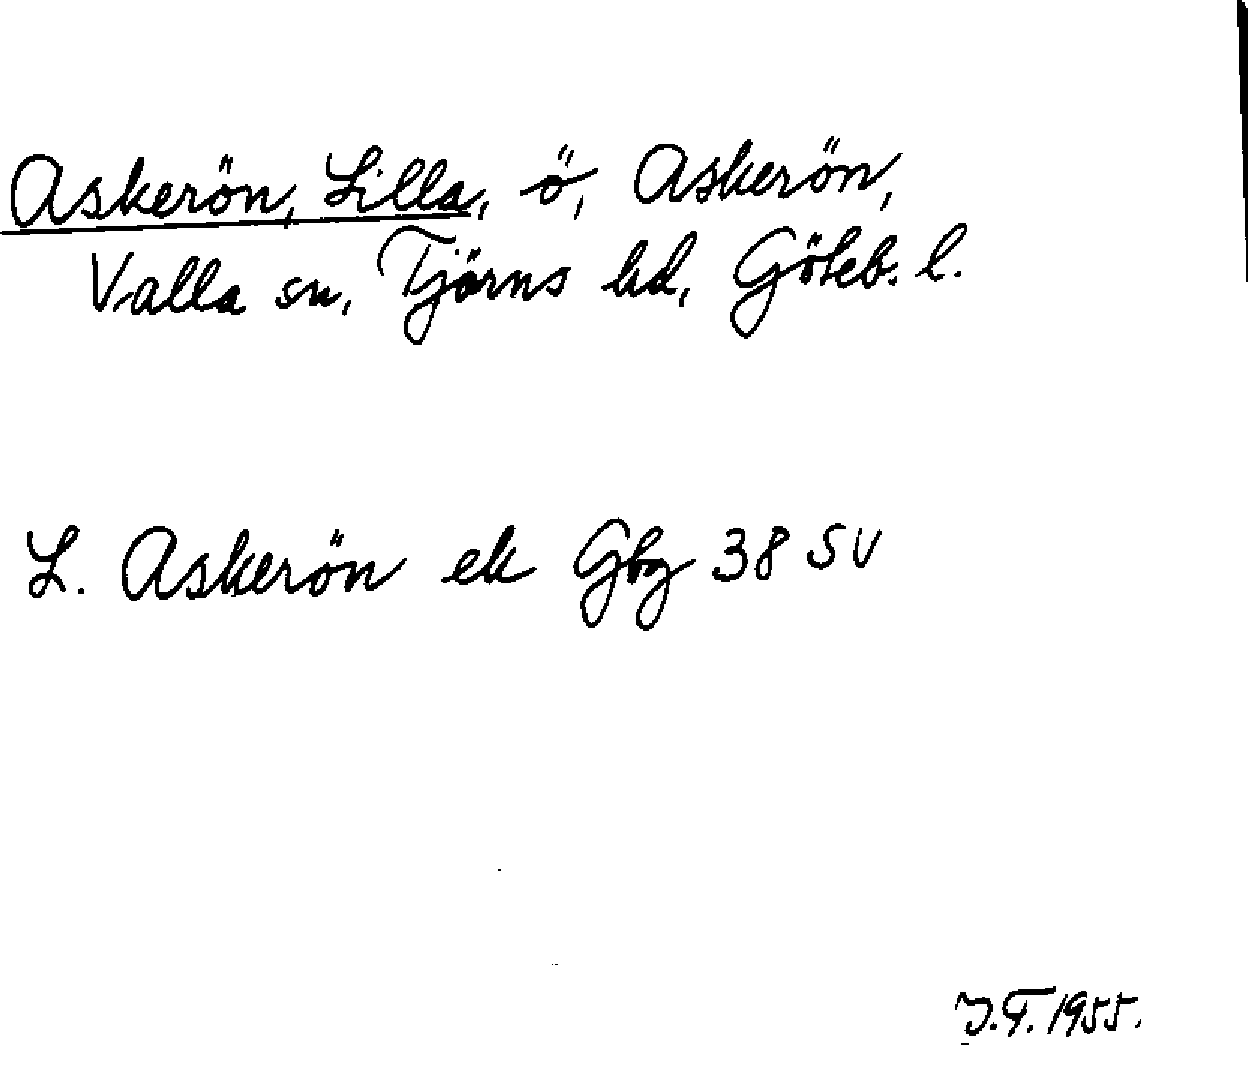 Askerön, Lilla, ö, Askerön,
Valla sn, Tjörns hd, Göteb. l.
L. Askerön ek Gbg 38 SV
J.F. 1955.